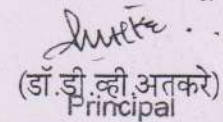 (डॉ.डी.व्ही.अतकरे)
Principal